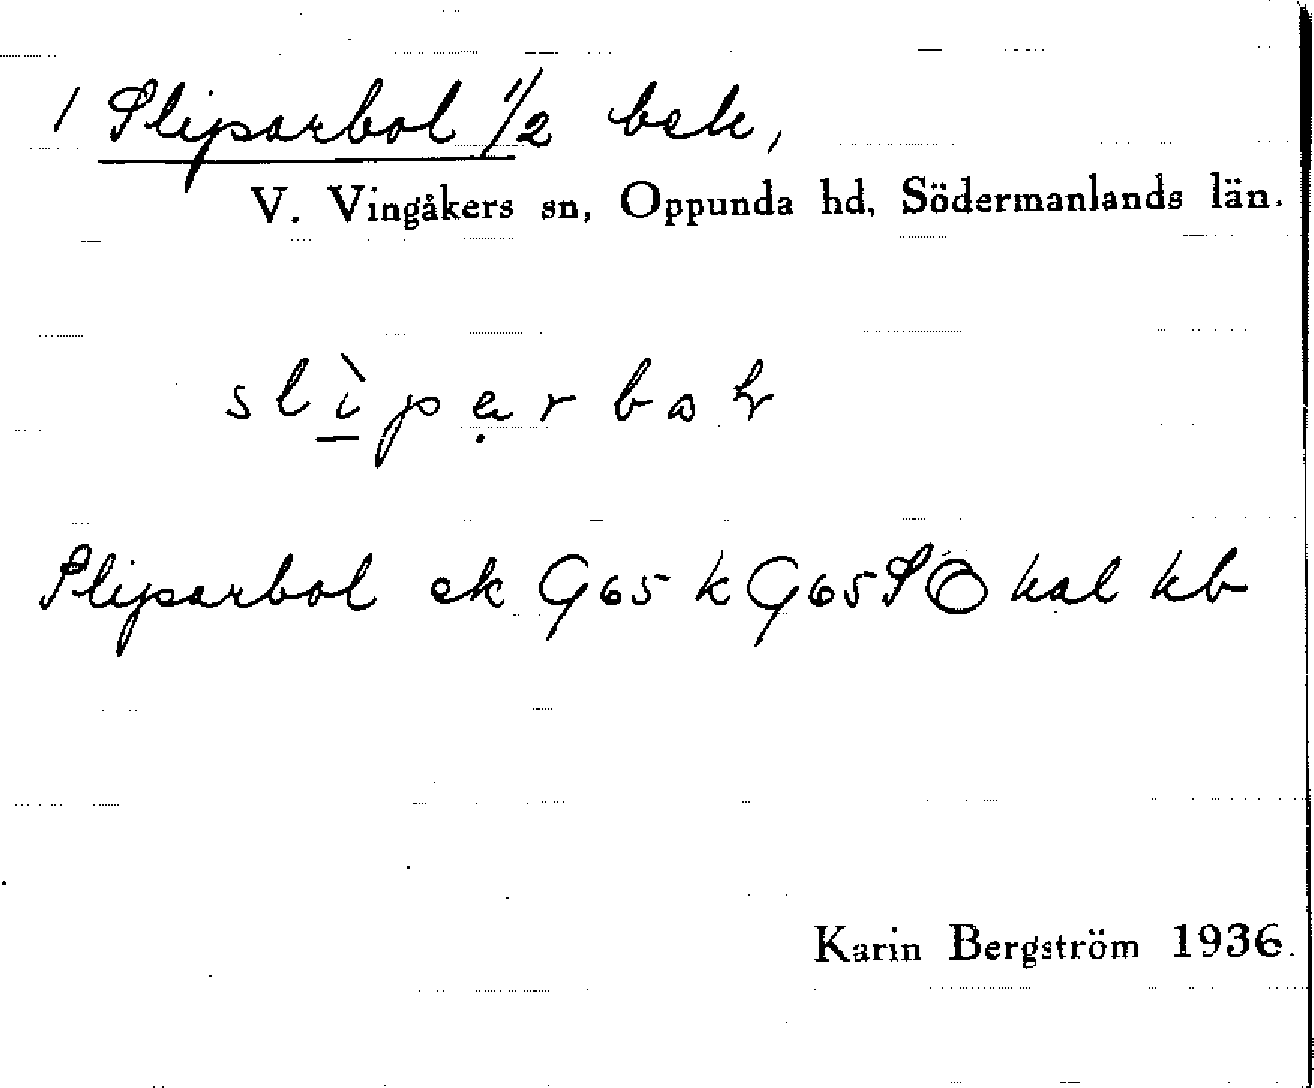 1 Sliparbol 1/2 bek,
V. Vingåkers sn, Oppunda hd, Södermanlands län.
slìparbol
Sliparbol ek G65 k G65 SO hal kb
Karin Bergström 1936.